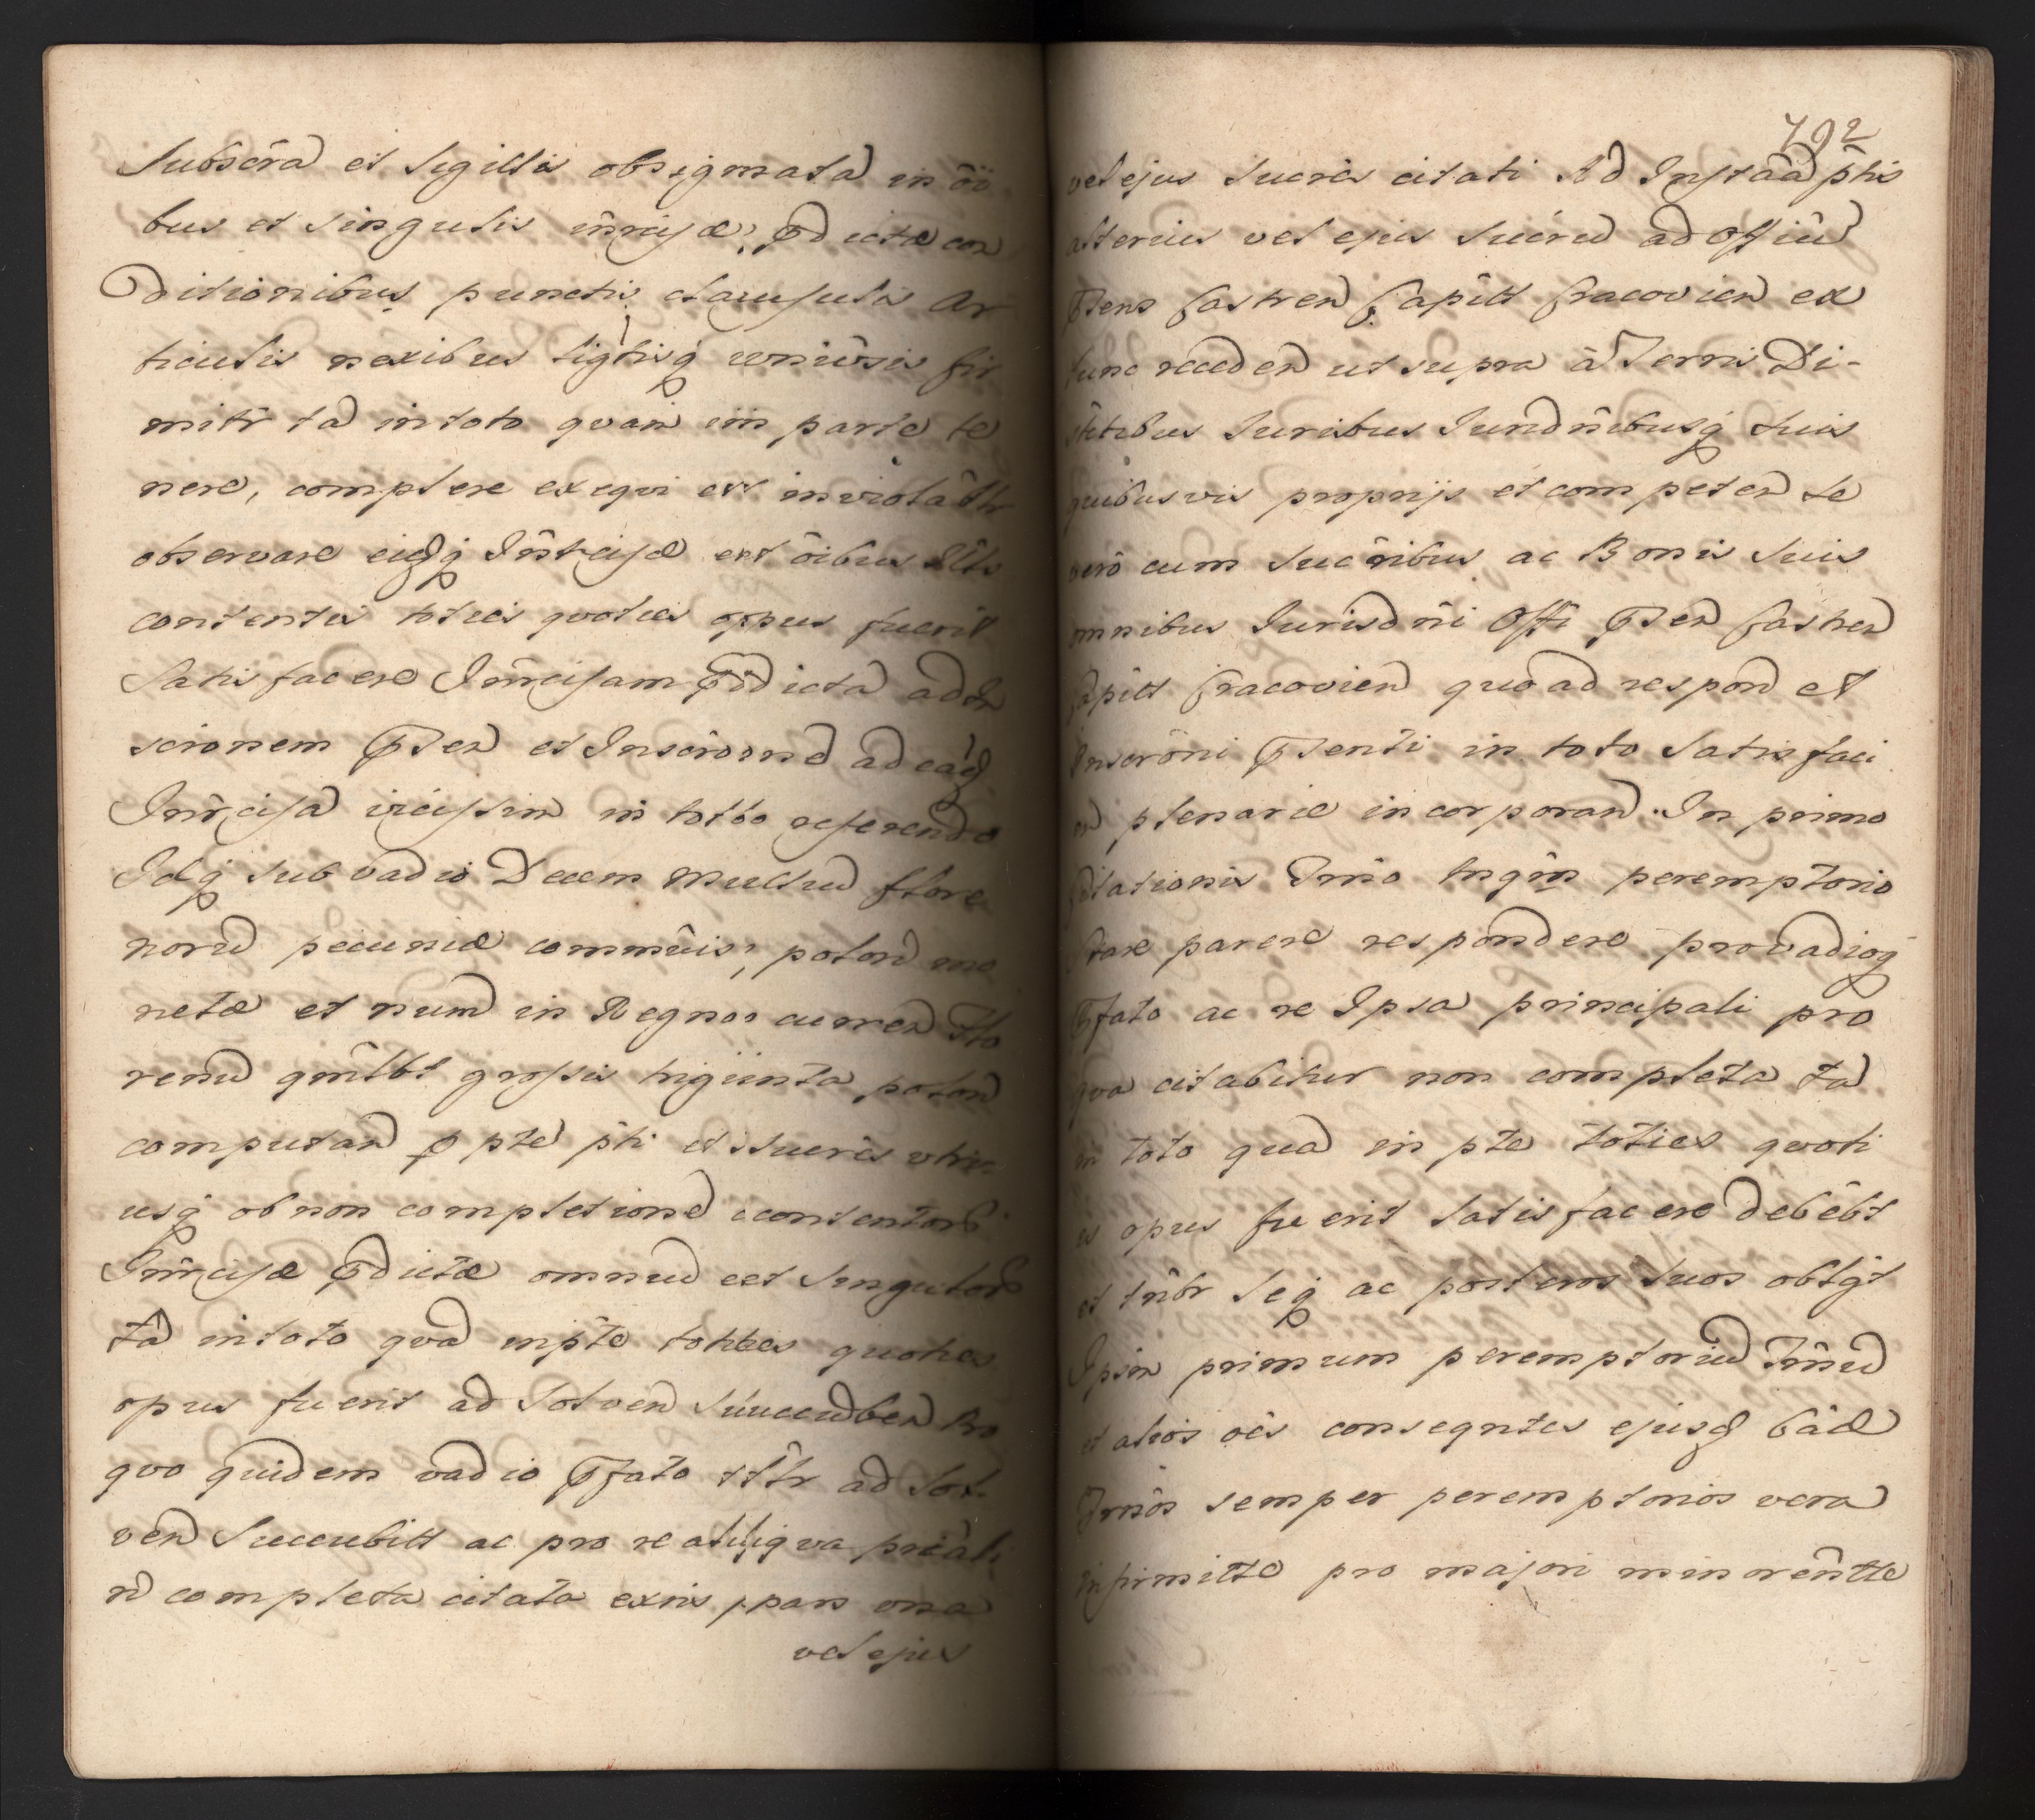 Subscra et Sigillis obsignata in oi
bus et singulis inrcisæ, prædictæ con
ditionibus punctis clausulis Ar
ticulis nexibus ligtisq universis fir
mitr ta in toto quam in parte te
nere, complere exeqvi et inviolabtr
observare eidq Intercisæ et oibus
contentis toties qvoties opus fuerit
Satisfacere Inrcisam prædicta ad In
scronem præsen et Inscronem ad eand
Inrcisa in totto referendo
Idq sub vadio Decem Millium flore
noru pecuniæ communis, polon mo
netæ et num in Regno curren Flo
renu qmlbt grossis triginta polon
computan p pte pti et Sucris utri
usq ob non completione contentor
Inrcisæ prædictæ omniu et Singulor
ta in toto qva in pte toties quoties
opus fuerit ad Solven Succumben Pro
qvo quidem vadio præfato ad Sol
ven Succubitt ac pro re aliqva prcali
n completa citata exnis pars una
vel ejus
792
vel ejus Sucris citati Ad Instaa ptis
alterius vel ejus Sucru ad Offiu
præsens Castren Capitt Cracovien ex
tunc receden ut supra à Terris Di-
strictibus Juribus Jurisdnibusq Suis
quibusvis proprijs et competen se
vero cum Sucribus ac Bonis Suis
omnibus Jurisdni Offi præsen Castren
Capitt Cracovien quoad respond et
Inscroni præsenti in toto Satisfaci
en plenarie incorporan. In primo
citationis Trno tnqm peremptorio
Stare parere respondere pro vadioq
præfato ac re Ipsa principali pro
qva citabitur non completa ta
in toto qua in pte toties qvoti
es opus fuerit Satisfacere debebt
et tnbr Seq ac posteros Suos oblgt
Ipsm primum peremptoriu Trnu
et alios oes conseqntes ejusd caæ
Trnos semper peremptorios vera
infirmitte pro majori minorentte